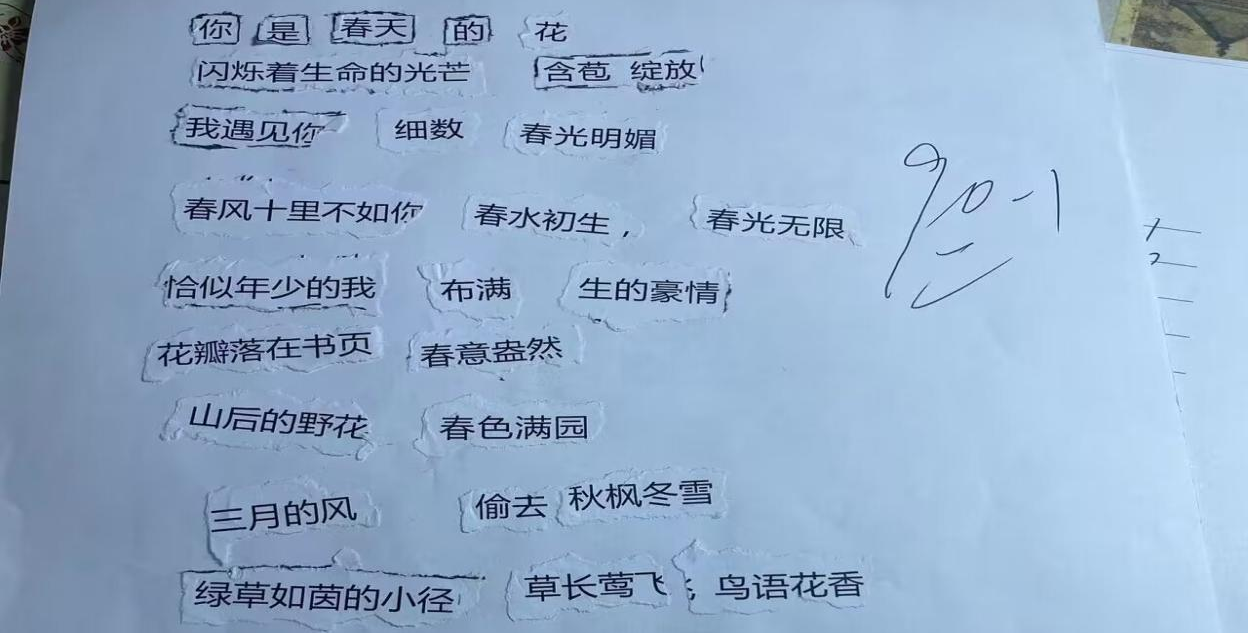 你是春天的花
闪烁着生命的光芒 含苞 绽放
我遇见你 细数 春光明媚
春风十里不如你 春水初生， 春光无限
恰似年少的我 布满 生的豪情
花瓣落在书页 春意盎然
山后的野花 春色满园
三月的风 偷去 秋枫冬雪
绿草如茵的小径 草长莺飞 鸟语花香
90-1